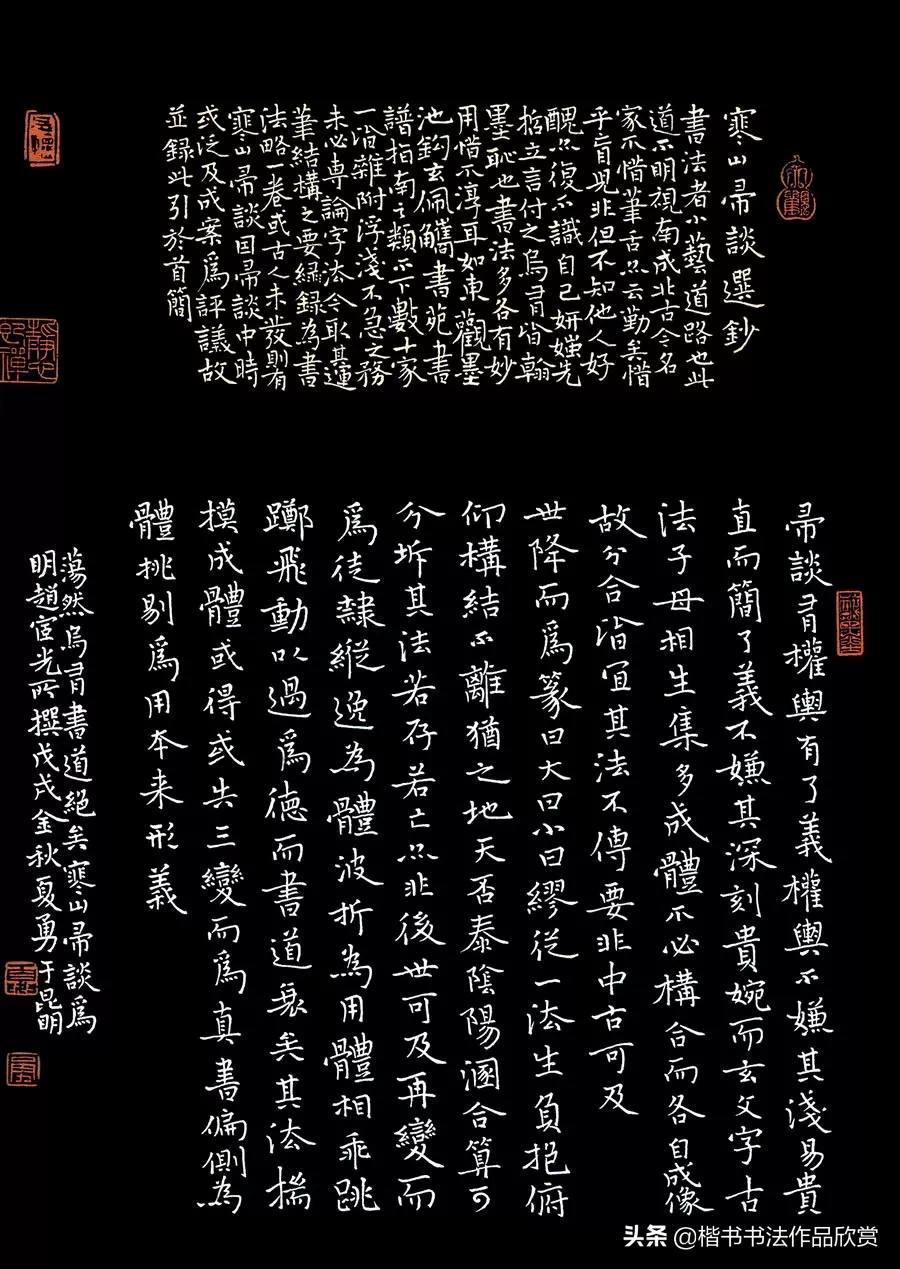 寒山帚談選鈔
書法者小藝道路也此
道不明視南成北古今名
家不惜筆舌然云勤矣惜
乎盲見非但不知他人好
醜然復不識自己妍媸先
哲立言付之烏有皆翰
墨恥也書法多各有妙
用惜不淳耳如東觀墨
池鈎玄佩觿書苑書
譜指南之類不下數十家
一洽雜附浮淺不急之務
未必專論字法今取其運
筆結構之要編錄為書
法略一卷或古人未發則有
寒山帚談因帚談中時
或泛及成案爲評議故
並錄此引於首簡
帚談有權輿有了義權輿不嫌其淺易貴
直而簡了義不嫌其深刻貴婉而玄文字古
法子母相生集多成體不必構合而各自成像
故分合皆宜其法不傳要非中古可及
世降而爲篆曰大曰小曰繆從一法生負抱俯
仰構結不離猶之地天否泰陰陽溷合算可
分坼其法若存若亡然非後世可及再變而
爲徒隸縱逸為體波折為用體相乖跳
躑飛動以過爲德而書道衰矣其法揣
摸成體或得或失三變而爲真書偏側為
體挑剔爲用本來形義
蕩然烏有書道絕矣寒山帚談爲
明趙宧光所撰戊戌金秋夏勇于昆明
头条 @楷书书法作品欣赏